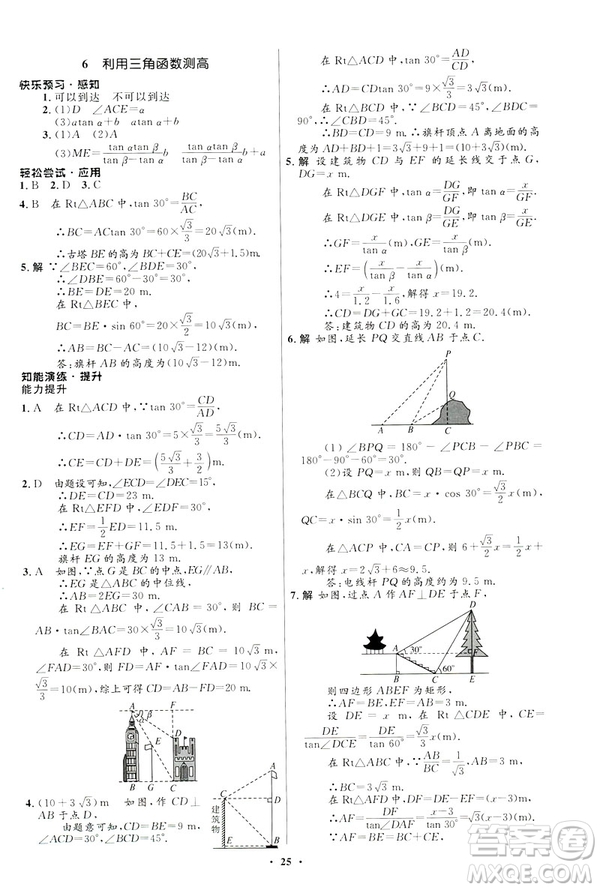 6 利用三角函数测高
快乐预习·感知
1.可以到达 不可以到达
2.(1)D ∠ACE=α
(2)atan α (3)atan α+b
3.(1)A (2)A
(3)ME=\frac{btan αtan β}{tan β-tan α}
轻松尝试·应用
1.B 2.D 3.C
4.B 在 Rt△ABC 中,∵tan 30°=\frac{BC}{AC},
∴BC=ACtan 30°=60×\frac{\sqrt{3}}{3}=20\sqrt{3}(m).
∴古塔 BE 的高为(20\sqrt{3}+1.5) m.
5.解 ∵∠BEC=60°,∠BDE=30°,
∴∠DBE=60°-30°=30°.
∴BE=DE=20 m.
在 Rt△BEC 中,
BC=BE·sin 60°=20×\frac{\sqrt{3}}{2}=10\sqrt{3}(m).
∴AB=BC-AC
答:旗杆 AB 的高度为
知能演练·提升
能力提升
1.A 在 Rt△ACD 中,∵tan 30°=\frac{CD}{AD},
∴CD=AD·tan 30°=5×\frac{\sqrt{3}}{3}=\frac{5\sqrt{3}}{3}(m).
∴CE=CD+DE=(\frac{5\sqrt{3}}{3}+\frac{3}{2}) m.
2.D 由题设可知,∠ECD=∠EDC=15°,
∴DE=CE=23 m.
在 Rt△EFD 中,∠EDF=30°,
∴EF=\frac{1}{2}ED=11.5 m.
∴EG=EF+FG=11.5+1.5=13(m).
即旗杆 EG 的高度为 13 m.
3.A 如图,∵点 G 是 BC 的中点,EG∥AB,
∴EG 是△ABC 的中位线,
∴AB=2EG=30 m.
在 Rt△ABC 中,∠CAB=30°,则 BC=
AB·tan∠BAC=30×\frac{\sqrt{3}}{3}=10\sqrt{3}(m).
在 Rt△AFD 中,AF=BC=10\sqrt{3} m,
∠FAD=30°,则 FD=AF·tan∠FAD=10\sqrt{3}×
\frac{\sqrt{3}}{3}=10(m),综上可得,CD=AB-FD=20 m.
A α β F
D
E
B G C
4.(10+3\sqrt{3}) m 如图,作
CD⊥AB 于点 D.
由题意可知,∠BCD=
建筑物
A
C D
E B
在 Rt△ACD 中,tan 30°=\frac{AD}{CD},
∴AD=CD·tan 30°=9×\frac{\sqrt{3}}{3}=3\sqrt{3}(m).
在 Rt△BCD 中,∠BCD=45°,∠BDC=90°,
∴∠CBD=45°.
∴BD=CD=9 m.∴旗杆顶点 A 离地面的高
度为 AD+BD+1=3\sqrt{3}+9+1=(10+3\sqrt{3})(m).
5.解 设建筑物 CD 与 EF 的延长线交于点 G,
DG=x m.
在 Rt△DGF 中,tan α=\frac{DG}{GF},即 tan α=\frac{x}{GF}.
在 Rt△DGE 中,tan β=\frac{DG}{GE},即 tan β=\frac{x}{GE}.
∴GF=\frac{x}{tan α}(m),GE=\frac{x}{tan β}(m).
∴EF=(\frac{x}{tan β}-\frac{x}{tan α})(m).
∴4=\frac{x}{1.2}-\frac{x}{1.6},解得 x=19.2.
∴CD=DG+GC=19.2+1.2=20.4(m).
答:建筑物 CD 的高度为 20.4 m.
6.解 如图,延长 PQ 交直线 AB 于点 C.
P
Q
A B C
(1)∠BPQ=180°-∠PBC-∠PCB=
180°-90°-60°=30°.
(2)设 PQ=x m,则 QB=QP=x m.
在△BCQ 中,BC=x·cos 30°=\frac{\sqrt{3}}{2}x(m),
QC=x·sin 30°=\frac{1}{2}x(m).
在△ACP 中,CA=CP,则 6+\frac{\sqrt{3}}{2}x=\frac{1}{2}x+x,
解得 x=2\sqrt{3}+6≈9.5.
答:电线杆 PQ 的高度约为 9.5 m.
7.解 如图,过点 A 作 AF⊥DE 于点 F,
D
A 30° F
60°
B C E
则四边形 ABEF 为矩形.
∴AF=BE,EF=AB=3 m.
设 DE=x m,在 Rt△CDE 中,CE=
\frac{DE}{tan∠DCE}=\frac{DE}{tan 60°}=\frac{\sqrt{3}}{3}x(m).
在 Rt△ABC 中,∵\frac{AB}{BC}=\frac{1}{\sqrt{3}},AB=3 m,
∴BC=3\sqrt{3} m.
在 Rt△AFD 中,DF=DE-EF=(x-3) m,
25
答案圈